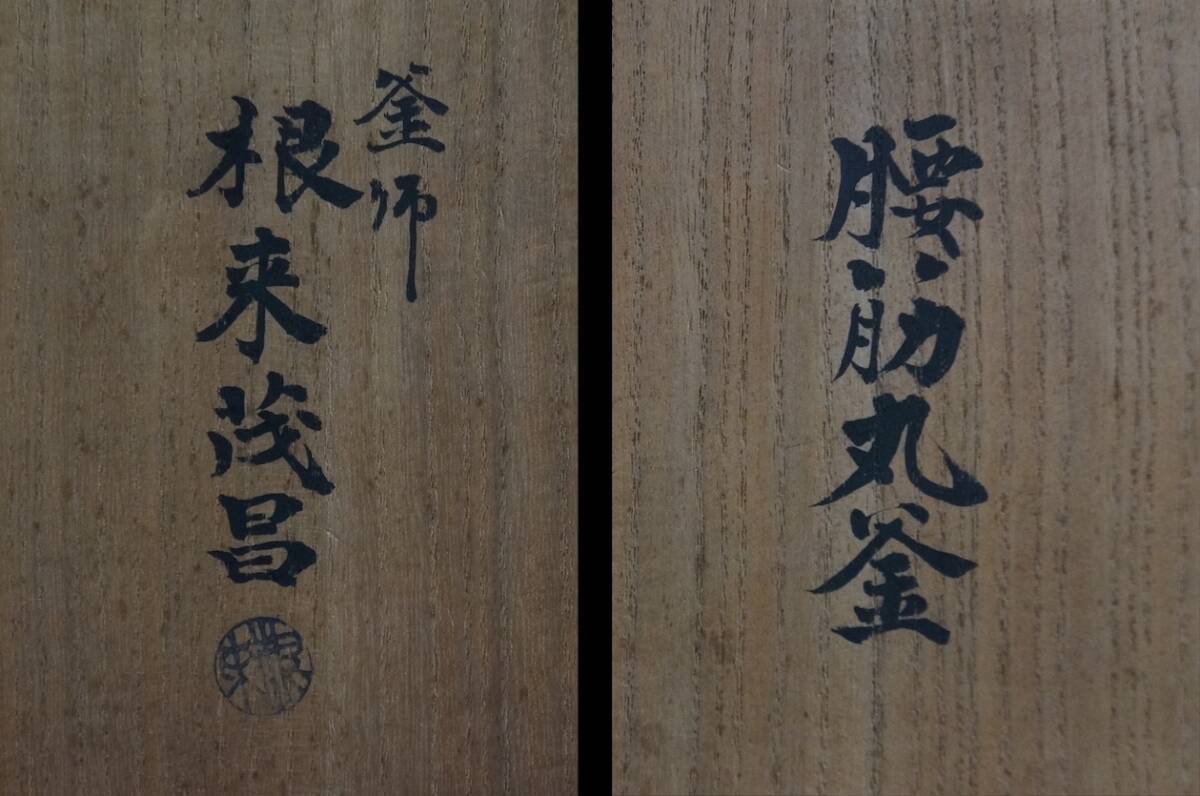 釜師
根来茂昌
腰筋丸釜